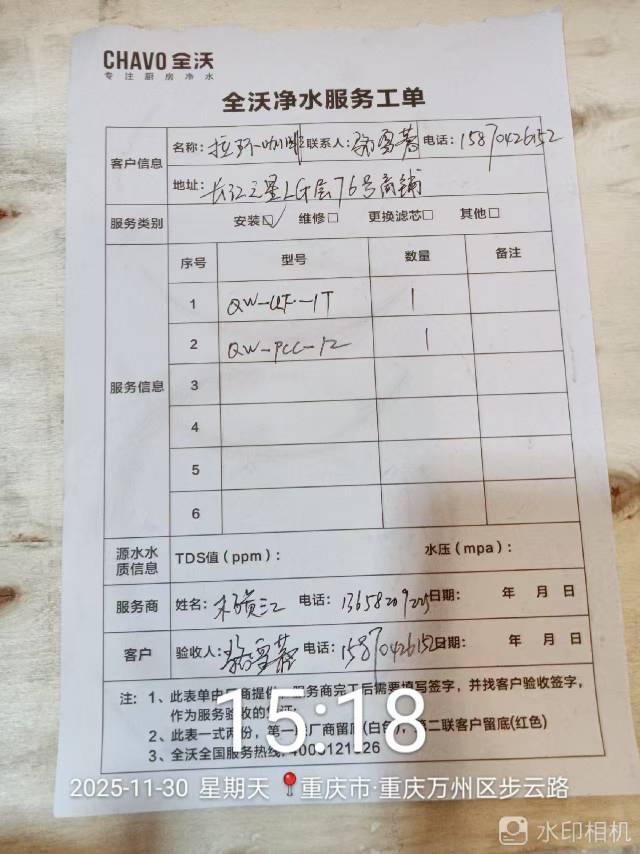 CHAVO 全沃
专注厨房净水
全沃净水服务工单
客户信息
名称：拉环咖啡 联系人： 电话：15870426152
地址：长江之星LG层76号商铺
服务类别 安装☑ 维修□ 更换滤芯□ 其他□
服务信息
序号 型号 数量 备注
1 QW-UF-1T 1
2 QW-PCC-12 1
3
4
5
6
源水水质信息 TDS值（ppm）： 水压（mpa）：
服务商 姓名： 电话：13658209225 日期： 年 月 日
客户 验收人： 电话：15870426152 日期： 年 月 日
注：1、此表单由厂商提供，服务商完工后需要填写签字，并找客户验收签字，
作为服务验收的凭证；
2、此表一式两份，第一联厂商留底(白色)，第二联客户留底(红色)
3、全沃全国服务热线：
15:18
2025-11-30 星期天 重庆市·重庆万州区步云路
水印相机